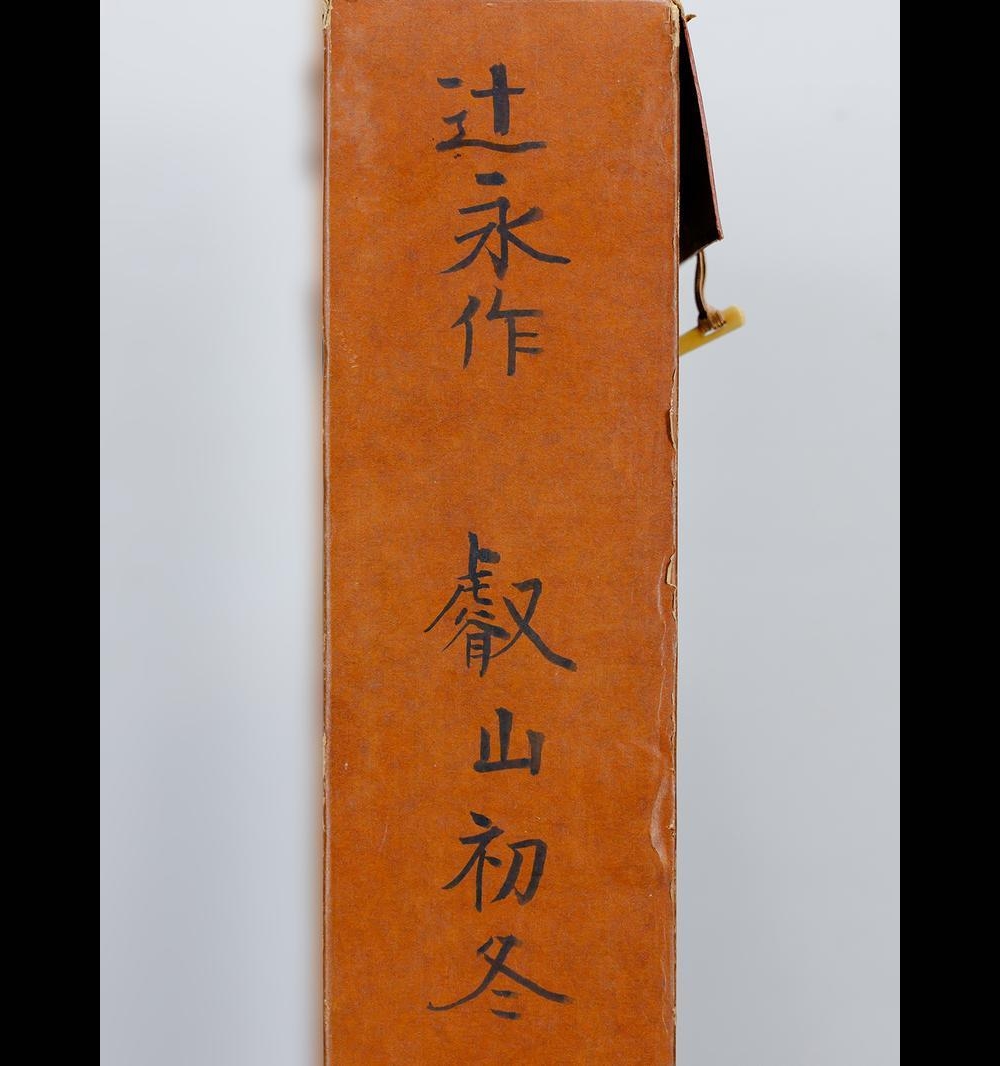 辻永作　叡山初冬